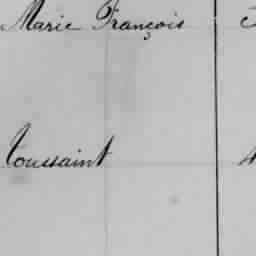 Marie François
Toussaint